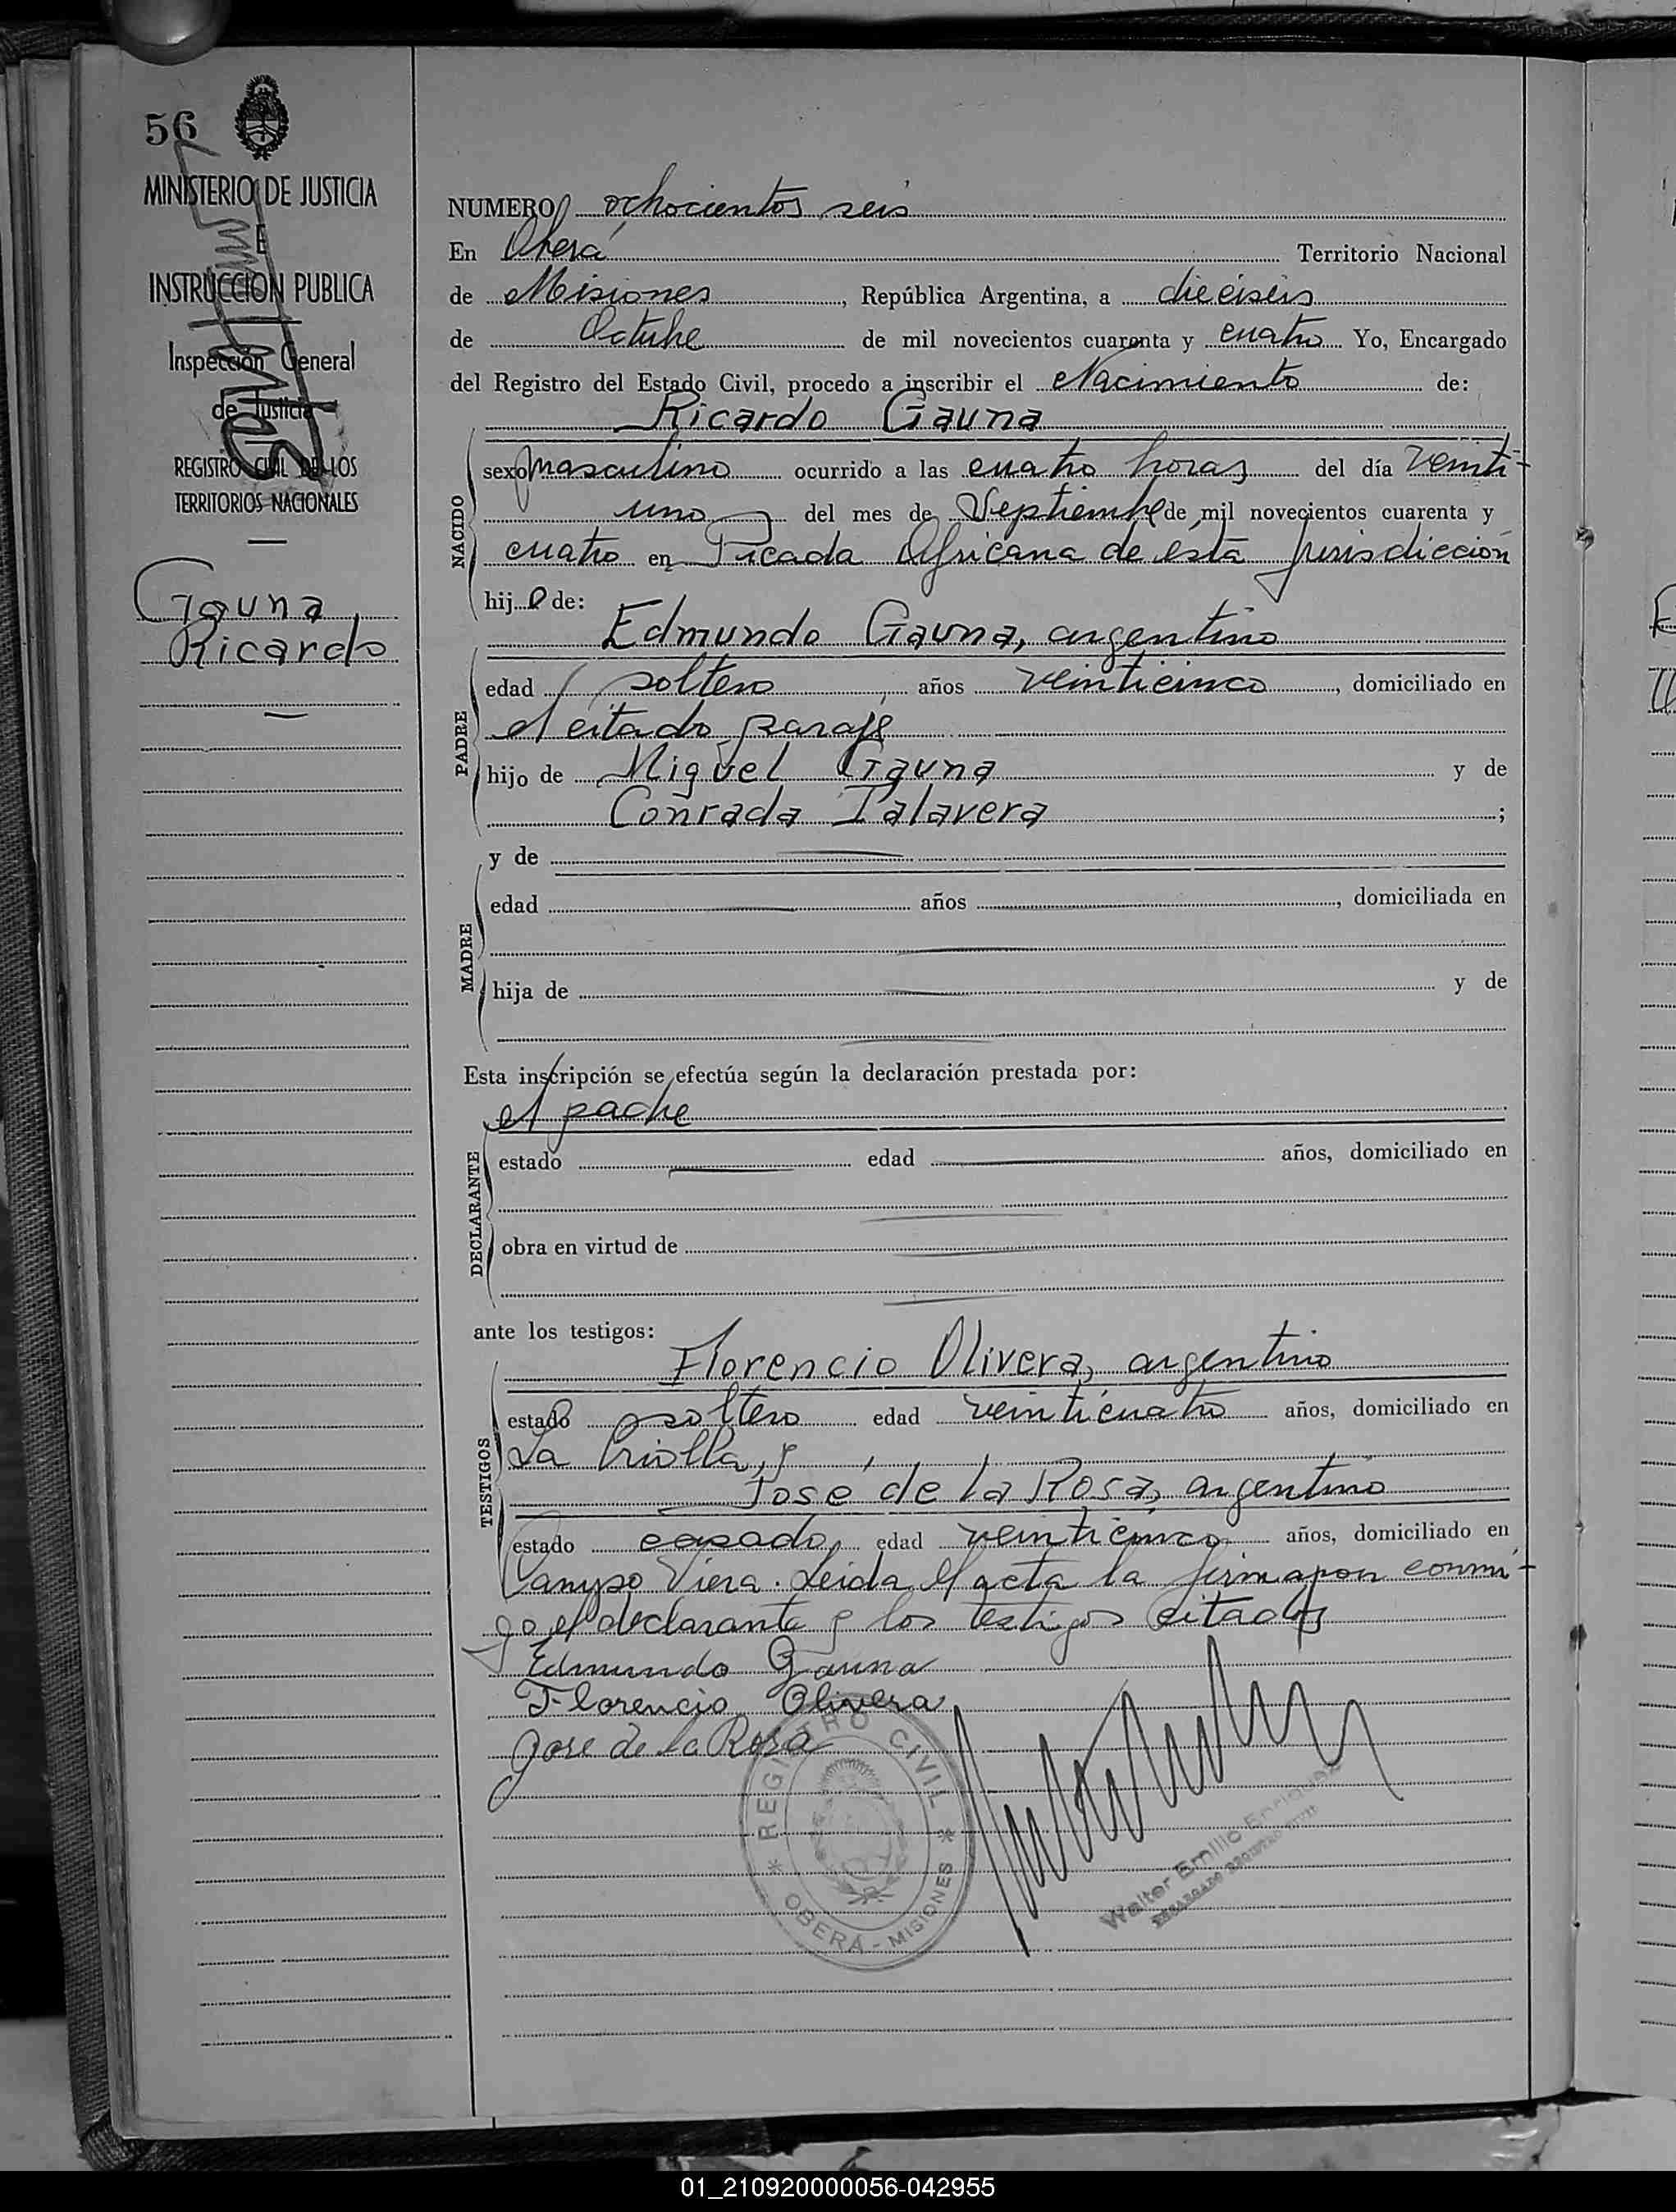 56
MINISTERIO DE JUSTICIA
E
INSTRUCCION PUBLICA
Inspección General
de Justicia
REGISTRO CIVIL DE LOS
TERRITORIOS NACIONALES
Gauna
Ricardo
NUMERO ochocientos seis
En Oberá Territorio Nacional
de Misiones, República Argentina, a dieciseis
de Octubre de mil novecientos cuarenta y cuatro Yo, Encargado
del Registro del Estado Civil, procedo a inscribir el Nacimiento de:
Ricardo Gauna
NACIDO
sexo masculino ocurrido a las cuatro horas del día veinti-
uno del mes de Septiembre de mil novecientos cuarenta y
cuatro en Picada Africana de ésta Jurisdiccion
hijo de:
Edmundo Gauna, argentino
PADRE
edad soltero, años veinticinco, domiciliado en
el citado paraje
hijo de Miguel Gauna y de
Conrada Talavera;
y de
MADRE
edad años, domiciliada en
hija de y de
Esta inscripción se efectúa según la declaración prestada por:
el padre
DECLARANTE
estado edad años, domiciliado en
obra en virtud de
ante los testigos:
Florencio Olivera, argentino
TESTIGOS
estado soltero edad veinticuatro años, domiciliado en
La Criolla, y
José de la Rosa, argentino
estado casado, edad veinticinco años, domiciliado en
Campo Viera. Leida el acta la firmaron conmi-
go el declarante y los testigos citados
Edmundo Gauna
Florencio Olivera
Jose de la Rosa
REGISTRO CIVIL
OBERÁ - MISIONES
Walter Emilio Enriquez
ENCARGADO REGISTRO CIVIL
01_210920000056-042955